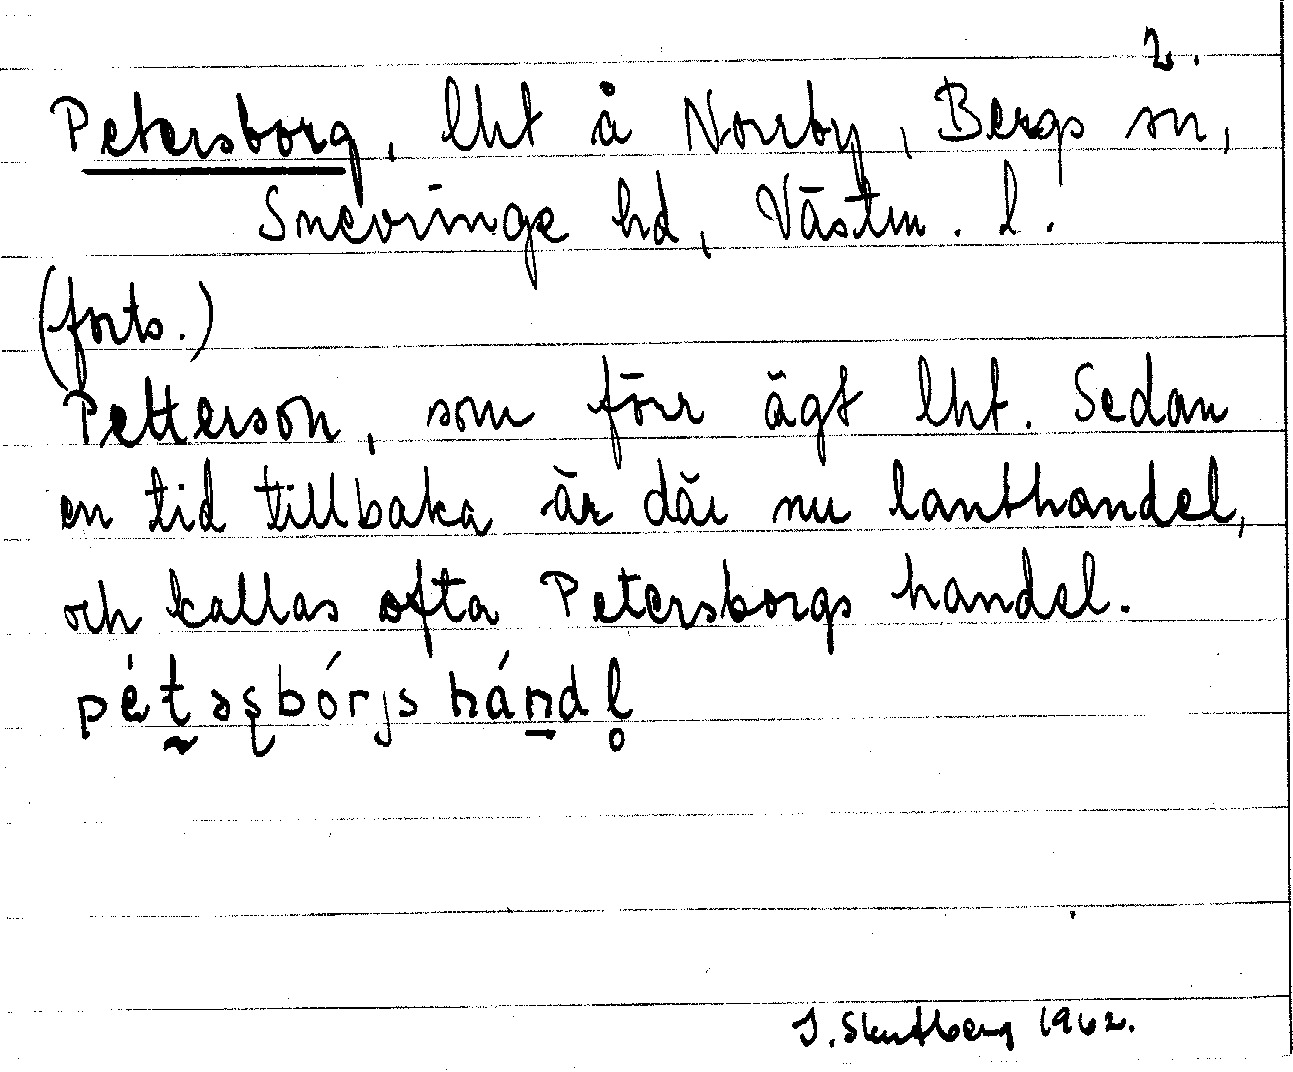 2.
Petersborg, lht å Norrby, Bergs sn,
Snevringe hd, Västm. l.
(forts.)
Petterson, som förr ägt lht. Sedan
en tid tillbaka är där nu lanthandel,
och kallas ofta Petersborgs handel.
1962.